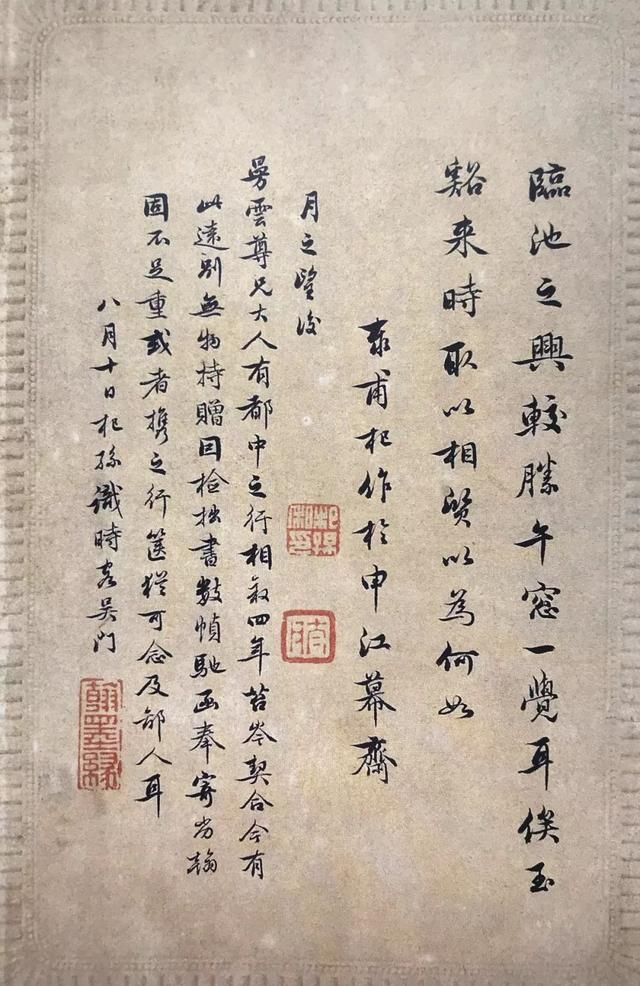 臨池之興較勝午窗一覺耳俟玉
谿来時取以相質以為何如
泰甫杞作於申江幕齋
月之望後
曼雲尊兄大人有都中之行相叙四年苔岑契合今有
此遠别無物持贈因检拙書数幀馳函奉寄劣翰
固不足重或者携之行篋猶可念及鄙人耳
八月十日杞孫識時客吳門
翰墨緣